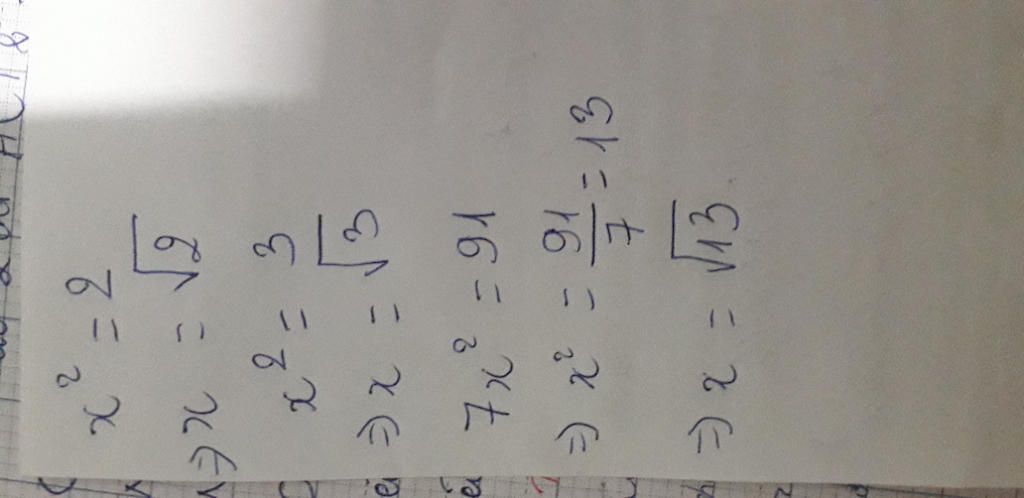 x² = 2
⇒ x = √2
x² = 3
⇒ x = √3
7x² = 91
⇒ x² = 91/7 = 13
⇒ x = √13